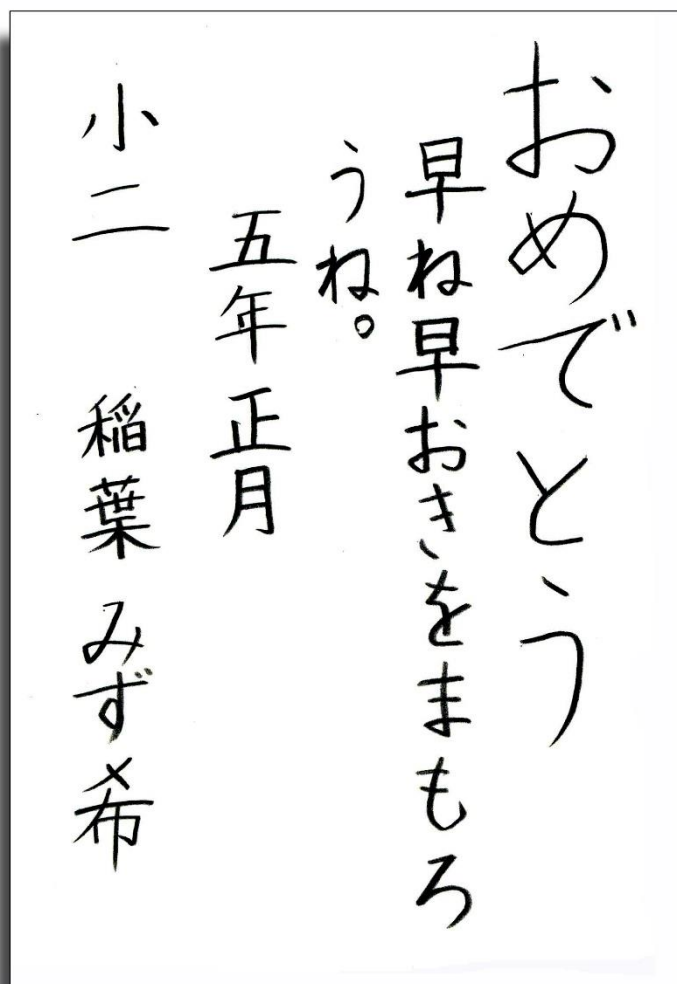 おめでとう
早ね早おきをまもろ
うね。
五年 正月
小二 稲葉 みず希